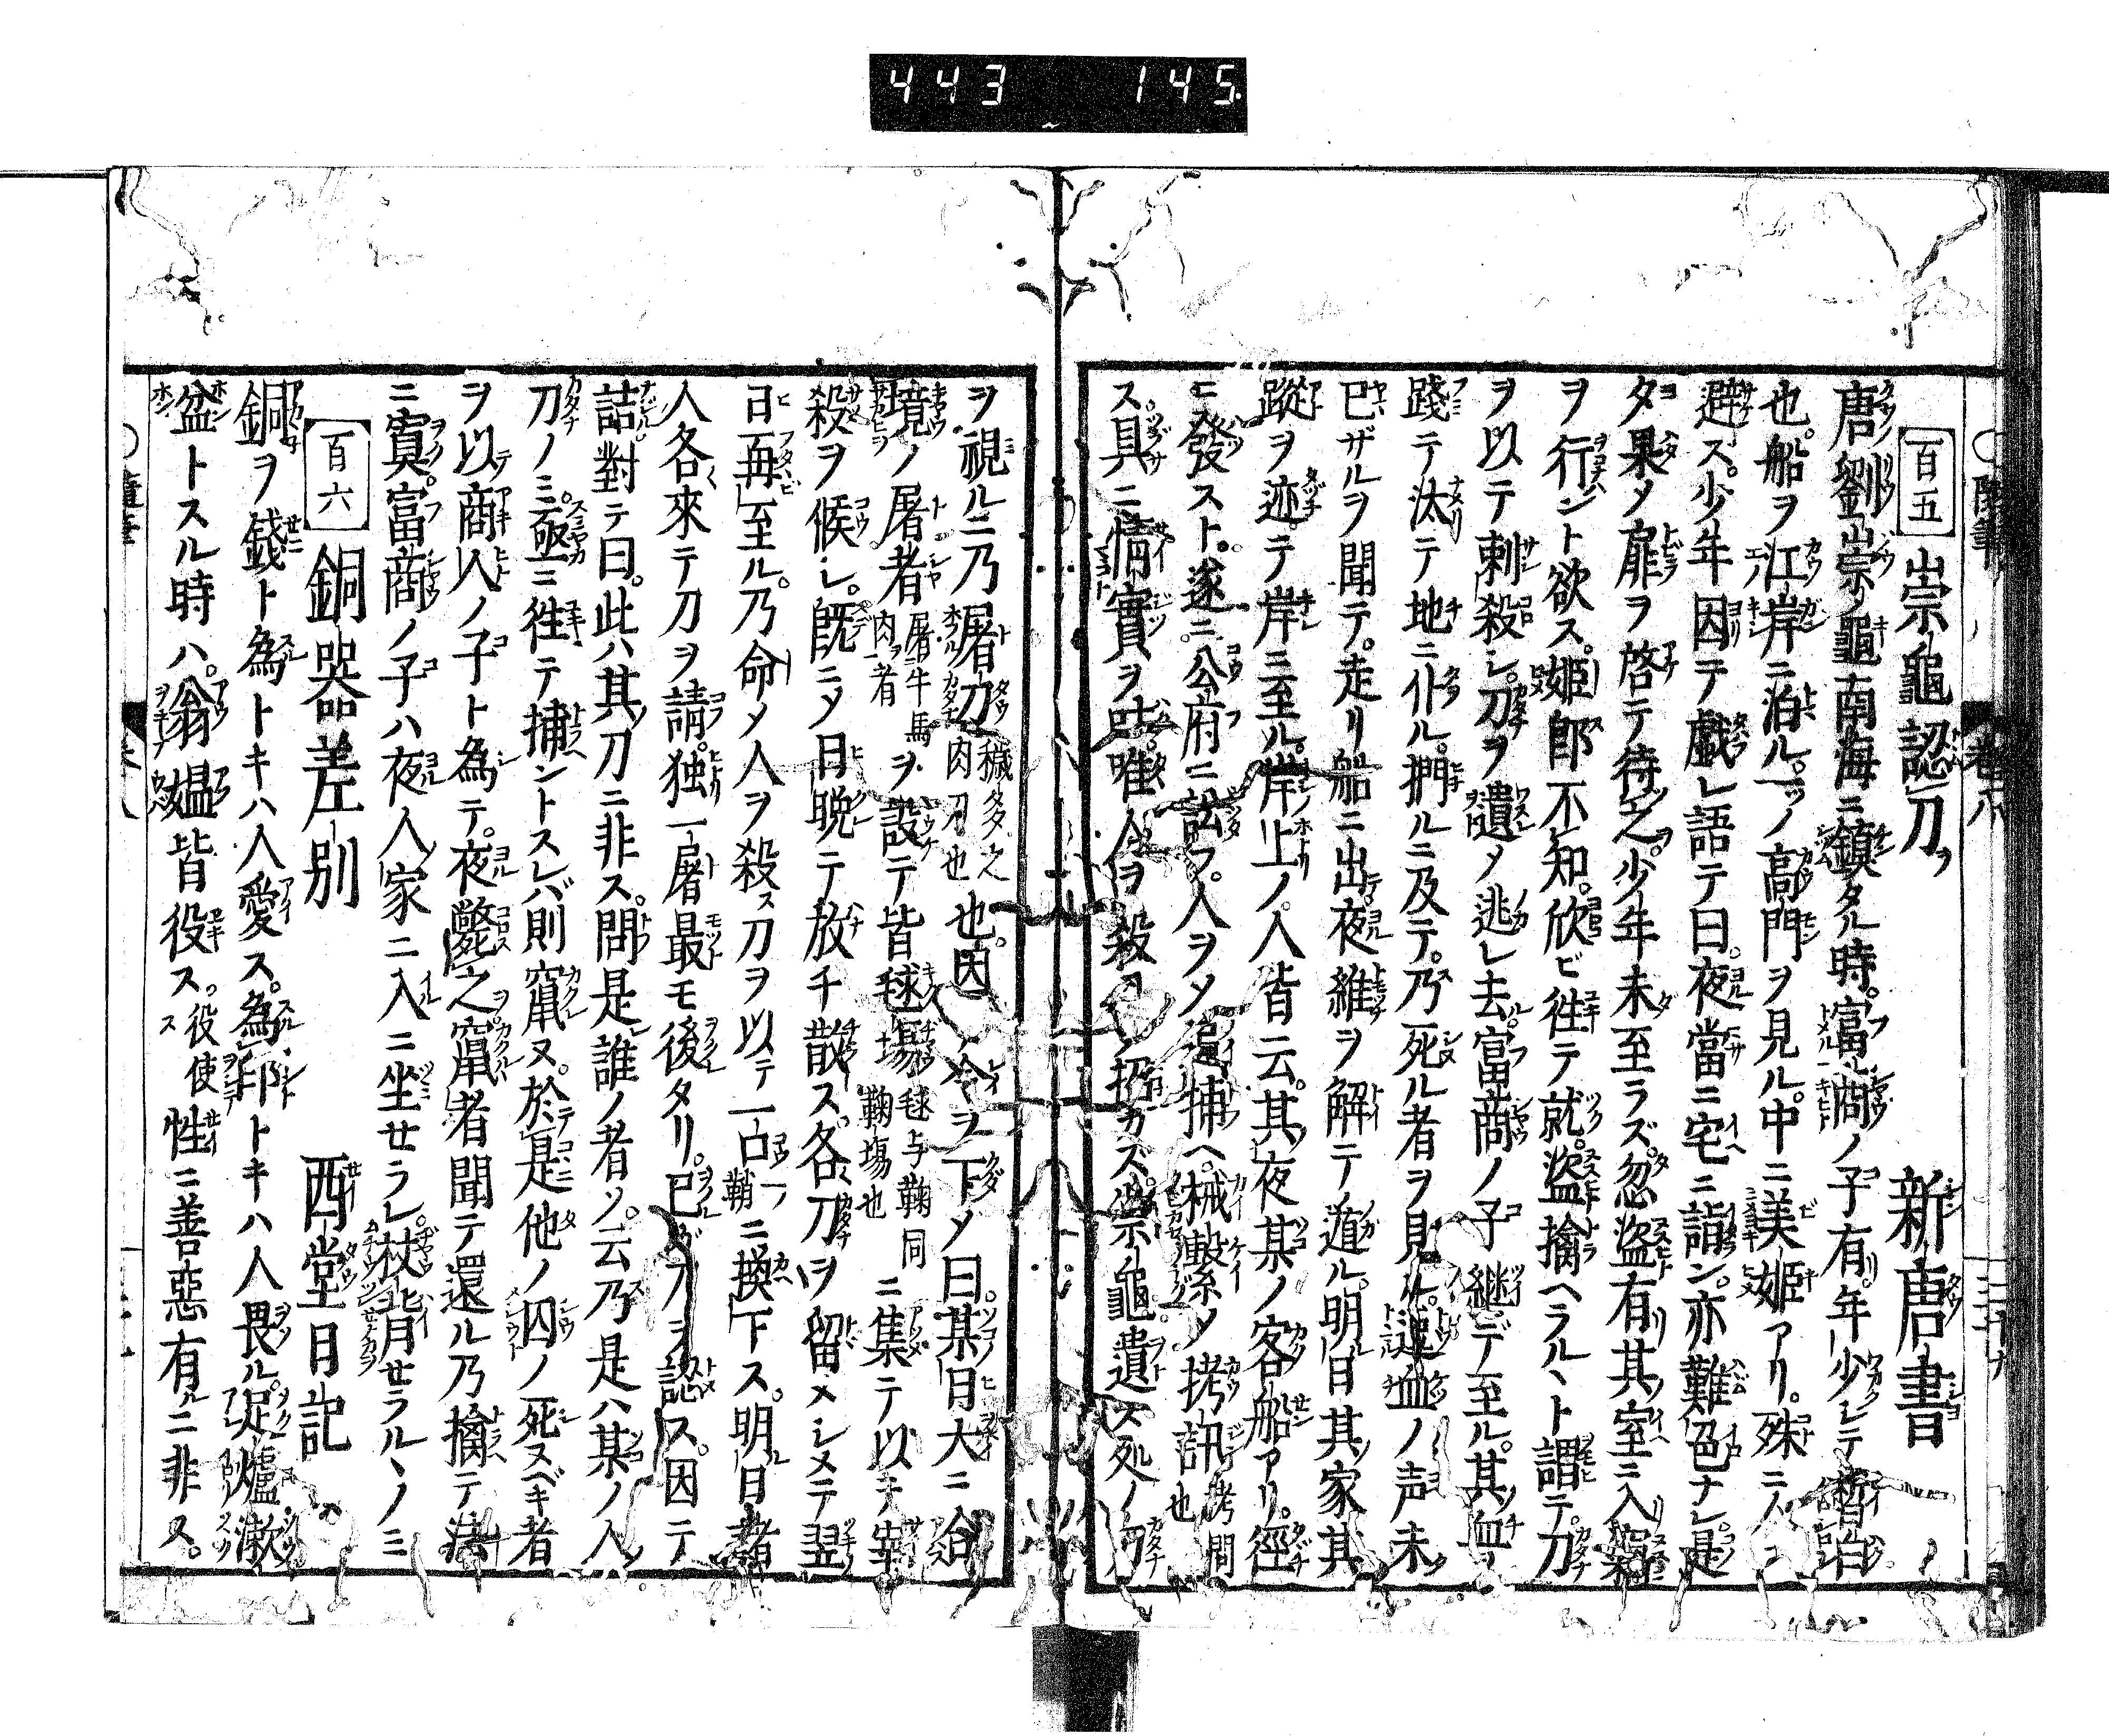 443 145
百五 崇龜認刀ヲ 新唐書
唐ノ劉崇龜南海ニ鎮タル時。富商ノ子有リ。年少シテ皙白
也。船ヲ江岸ニ泊ル。一ツノ高門ヲ見ル。中ニ美姬アリ。殊ニ人ヲ
避ズ。少年因テ戲レ語テ曰。夜當ニ宅ニ詣ン。亦難色ナシ。是
夕果メ扉ヲ啓テ待之。少年未至ラズ。忽盜有其室ニ入
ヲ行ント欲ス。姬即不知。欣ビ往テ就。盜擒ヘラルヽト謂テ。刀
ヲ以テ刺殺シ。刀ヲ遺メ逃レ去ル。富商ノ子継デ至ル。其血ヲ
踐テ汰テ地ニ仆ル。捫ルニ及テ。乃死ル者ヲ見ル。血ノ声未
已ザルヲ聞テ。走リ船ニ出テ。夜維ヲ解テ遁ル。明日其家其
蹤ヲ迹テ岸ニ至ル。岸上ノ人皆云。其夜某ノ客船アリ。徑
ニ發スト。遂ニ公府ニ訟フ。人ヲメ追捕ヘ。械繫メ拷訊 拷問也
ス具ニ情實ヲ吐。唯人ヲ殺ヿノ招カズ。崇龜遺ス処ノ刀
ヲ視ルニ乃屠刀 穢多之肉刀也 也。因ノ令ヲ下メ曰。某日大ニ會
境ノ屠者 屠ニ牛馬肉ヲ者 ヲ設テ皆毬場 毬与鞠同鞠場也 ニ集テ以テ宰
殺ヲ候シ。既ニメ日晩テ放チ散ス。各刀ヲ留メシメテ翌
日再至ル。乃命メ人ヲ殺ス刀ヲ以テ一口ニ換下ス。明日諸
人各來テ刀ヲ請。独一屠最モ後タリ。刀ヲ認ス。因テ
詰對テ曰。此ハ其刀ニ非ス。問是誰ノ者ソ。云乃是ハ某ノ人
刀ノミ。亟ニ往テ捕ントスレバ則竄ヌ。於是他ノ囚ノ死ヌベキ者
ヲ以テ商人ノ子ト為テ。夜斃之。竄者聞テ還ル乃擒テ法
ニ寘。富商ノ子ハ夜人家ニ入ニ坐せラレ。杖背せラルヽノミ
百六 銅器差別 西堂日記
銅ヲ錢ト為トキハ人愛ス。為印トキハ人畏ル。足爐漱
盆トスル時ハ。翁媼皆役ス。役使ス 性ニ善惡有ルニ非ス。